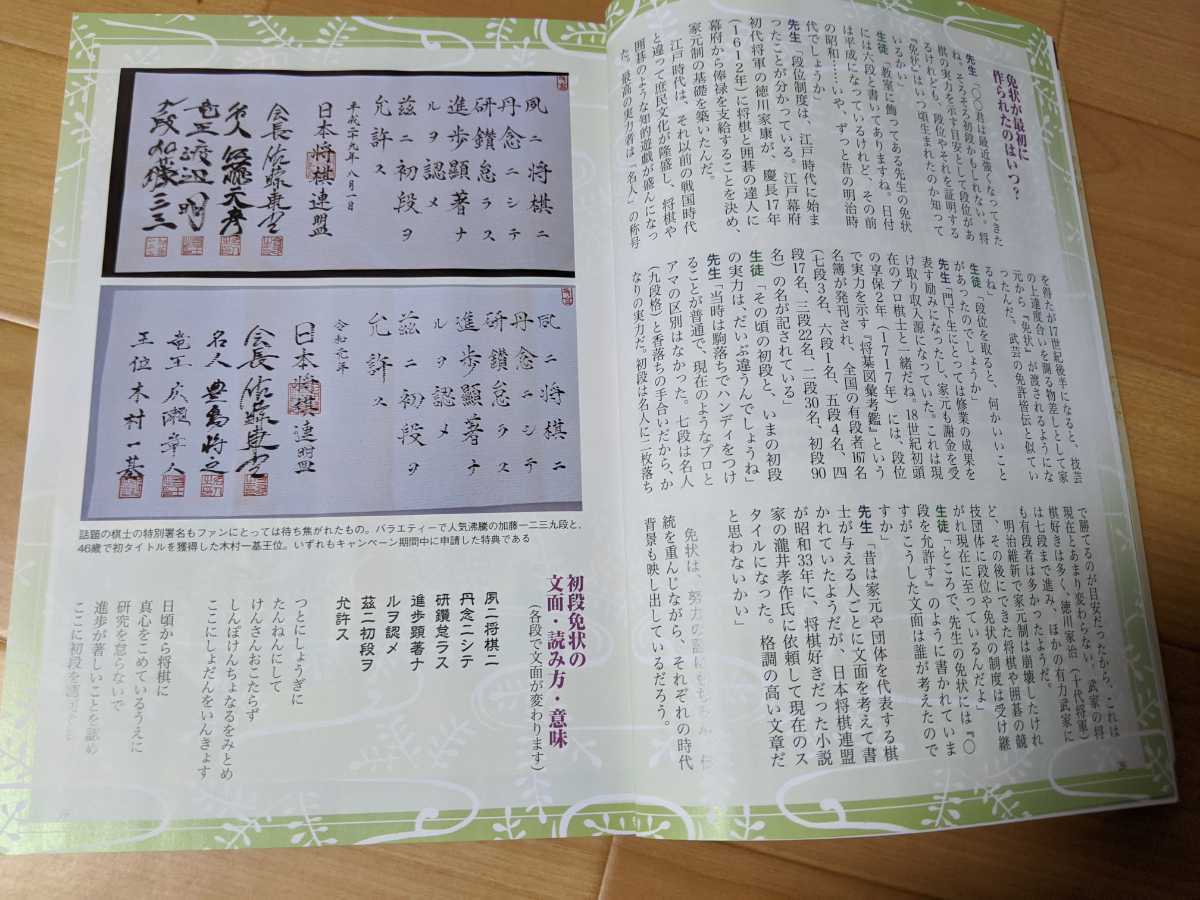 免状が最初に
作られたのはいつ?
先生「〇〇君は最近強くなってきた
ね。そろそろ初段かもしれない。将
棋の実力を示す目安として段位があ
るけれども、段位やそれを証明する
『免状』はいつ頃生まれたのか知って
いるかい」
生徒「教室に飾ってある先生の免状
には六段と書いてありますね。日付
は平成になっているけれど、その前
の昭和……いや、ずっと昔の明治時
代でしょうか」
先生「段位制度は、江戸時代に始ま
ったことが分かっている。江戸幕府
初代将軍の徳川家康が、慶長17年
(1612年)に将棋と囲碁の達人に
幕府から俸禄を支給することを決め、
家元制の基礎を築いたんだ。
江戸時代は、それ以前の戦国時代
と違って庶民文化が隆盛し、将棋や
囲碁のような知的遊戯が盛んになっ
た。最高の実力者は「名人」の称号
を得たが17世紀後半になると、技芸
の上達度合いを図る物差しとして家
元から『免状』が渡されるようにな
ったんだ。武芸の免許皆伝と似てい
るね」
生徒「段位を取ると、何かいいこと
があったのでしょうか」
先生「門下生にとっては修業の成果を
表す励みになったし、家元も謝金を受
け取り収入源になっていた。これは現
在のプロ棋士と一緒だね。18世紀初頭
の享保2年(1717年)には、段位
で実力を示す『将棊図彙考鑑』という
名簿が発刊され、全国の有段者167名
(七段3名、六段1名、五段4名、四
段17名、三段22名、二段30名、初段90
名)の名が記されている」
生徒「その頃の初段と、いまの初段
の実力は、だいぶ違うんでしょうね」
先生「当時は駒落ちでハンディをつけ
ることが普通で、現在のようなプロと
アマの区別はなかった。七段は名人
(九段格)と香落ちの手合いだから、か
なりの実力だ。初段は名人に二枚落ち
で勝てるのが目安だったから、これは
現在とあまり変わらない。武家の将
棋好きは多く、徳川家治(十代将軍)
は七段まで進み、ほかの有力武家に
も有段者は多かったようだ。
明治維新で家元制は崩壊したけれ
ど、その後にできた将棋や囲碁の競
技団体に段位や免状の制度は受け継
がれ現在に至っているんだよ」
生徒「ところで、先生の免状には『〇
段を允許す』のように書かれていま
すがこうした文面は誰が考えたので
すか」
先生「昔は家元や団体を代表する棋
士が与える人ごとに文面を考えて書
かれていたようだが、日本将棋連盟
が昭和33年に、将棋好きだった小説
家の瀧井孝作氏に依頼して現在のス
タイルになった。格調の高い文章だ
と思わないかい」
免状は、努力の証にもちろん、伝
統を重んじながら、それぞれの時代
背景も映し出しているだろう。
夙ニ将棋ニ
丹念ニシテ
研鑽怠ラス
進歩顕著ナ
ルヲ認メ
茲ニ初段ヲ
允許ス
平成二十九年八月一日
日本将棋連盟
会長佐藤康光
名人 佐藤天彦
竜王渡辺明
九段加藤一二三
夙ニ将棋ニ
丹念ニシテ
研鑽怠ラス
進歩顕著ナ
ルヲ認メ
茲ニ初段ヲ
允許ス
令和元年
日本将棋連盟
会長佐藤康光
名人 豊島将之
竜王広瀬章人
王位木村一基
話題の棋士の特別署名もファンにとっては待ち焦がれたもの。バラエティーで人気沸騰の加藤一二三九段と、
46歳で初タイトルを獲得した木村一基王位。いずれもキャンペーン期間中に申請した特典である
初段免状の
文面・読み方・意味
(各段で文面が変わります)
夙ニ将棋ニ
丹念ニシテ
研鑽怠ラス
進歩顕著ナ
ルヲ認メ
茲ニ初段ヲ
允許ス
つとにしょうぎに
たんねんにして
けんさんおこたらず
しんぽけんちょなるをみとめ
ここにしょだんをいんきょす
日頃から将棋に
真心をこめているうえに
研究を怠らないで
進歩が著しいことを認め
ここに初段を